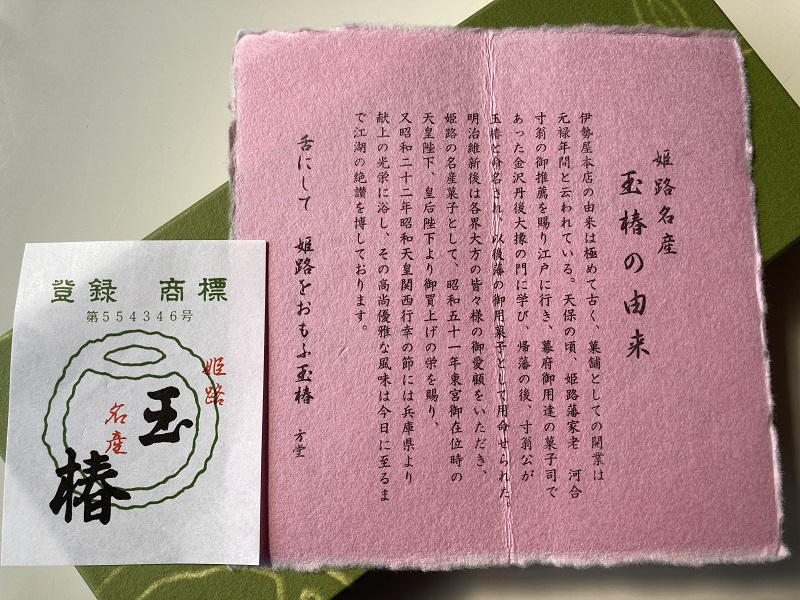 姫路名産
玉椿の由来
伊勢屋本店の由来は極めて古く、菓舗としての開業は
元禄年間と云われている。天保の頃、姫路藩家老　河合
寸翁の御推薦を賜り江戸に行き、幕府御用達の菓子司で
あった金沢丹後大掾の門に学び、帰藩の後、寸翁公が
玉椿と命名され、以後藩の御用菓子として用命せられた。
明治維新後は各界大方の皆々様の御愛顧をいただき、
姫路の名産菓子として、昭和五十一年東宮御在位時の
天皇陛下、皇后陛下より御買上げの栄を賜り、
又昭和二十二年昭和天皇関西行幸の節には兵庫県より
献上の光栄に浴し、その高尚優雅な風味は今日に至るま
で江湖の絶讃を博しております。
舌にして　姫路をおもふ玉椿　方堂
登録　商標
第554346号
姫路
名産
玉
椿